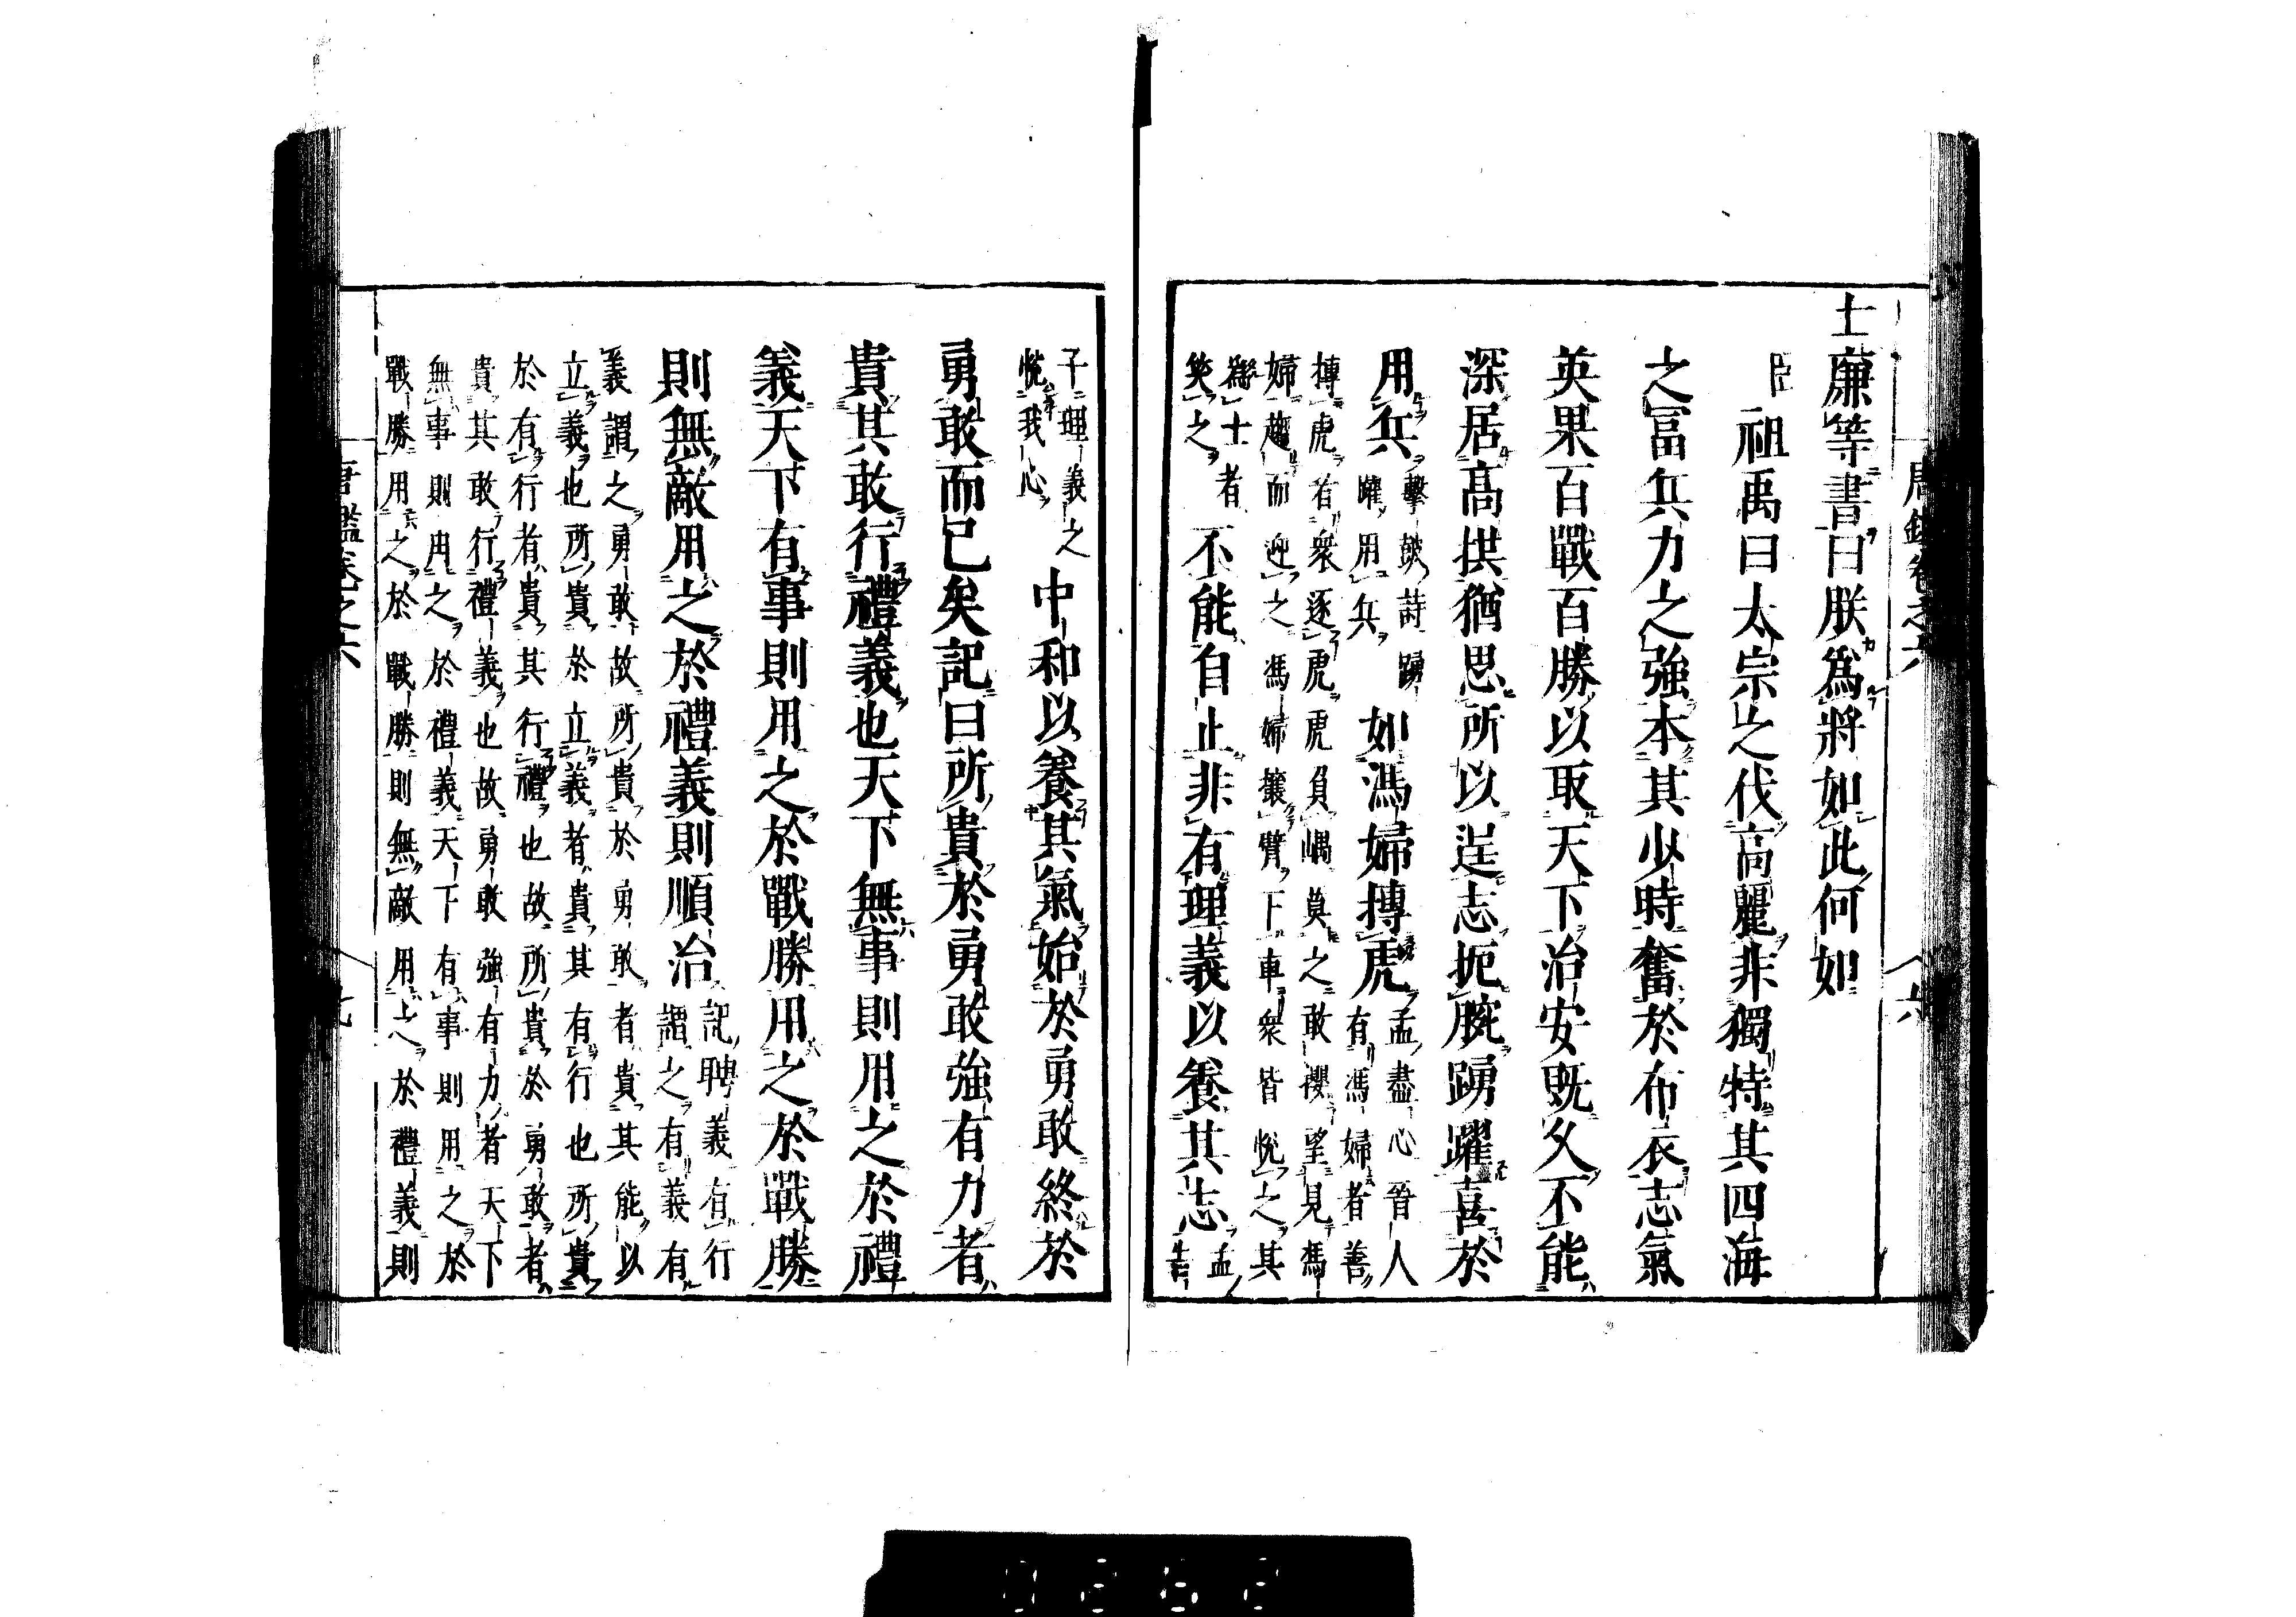 唐鑑卷之六
六
士廉等書曰朕爲將如此何如
臣祖禹曰太宗之伐高麗非獨特其四海
之冨兵力之強本其少時奮於布衣志氣
英果百戰百勝以取天下治安既久不能
深居高拱猶思所以逞志扼腕踴躍喜於
用兵
擊鼓詩踴
躍用兵
如馮婦搏虎
孟盡心晉人
有馮婦者善
搏虎有衆逐虎虎負嵎莫之敢攖望見馮
婦趨而迎之馮婦攘臂下車衆皆悅之其
爲士者
笑之
不能自止非有理義以養其志
孟
告
子理義之
悅我心
中和以養其氣始於勇敢終於
勇敢而已矣記曰所貴於勇敢強有力者
貴其敢行禮義也天下無事則用之於禮
義天下有事則用之於戰勝用之於戰勝
則無敵用之於禮義則順治
記聘義有行
謂之有義有
義謂之勇敢故所貴於勇敢者貴其能以
立義也所貴於立義者貴其有行也所貴
於有行者貴其行禮也故所貴於勇敢者
貴其敢行禮義也故勇敢強有力者天下
無事則用之於禮義天下有事則用之於
戰勝用之於戰勝則無敵用之於禮義則
唐鑑卷之六
七
0262